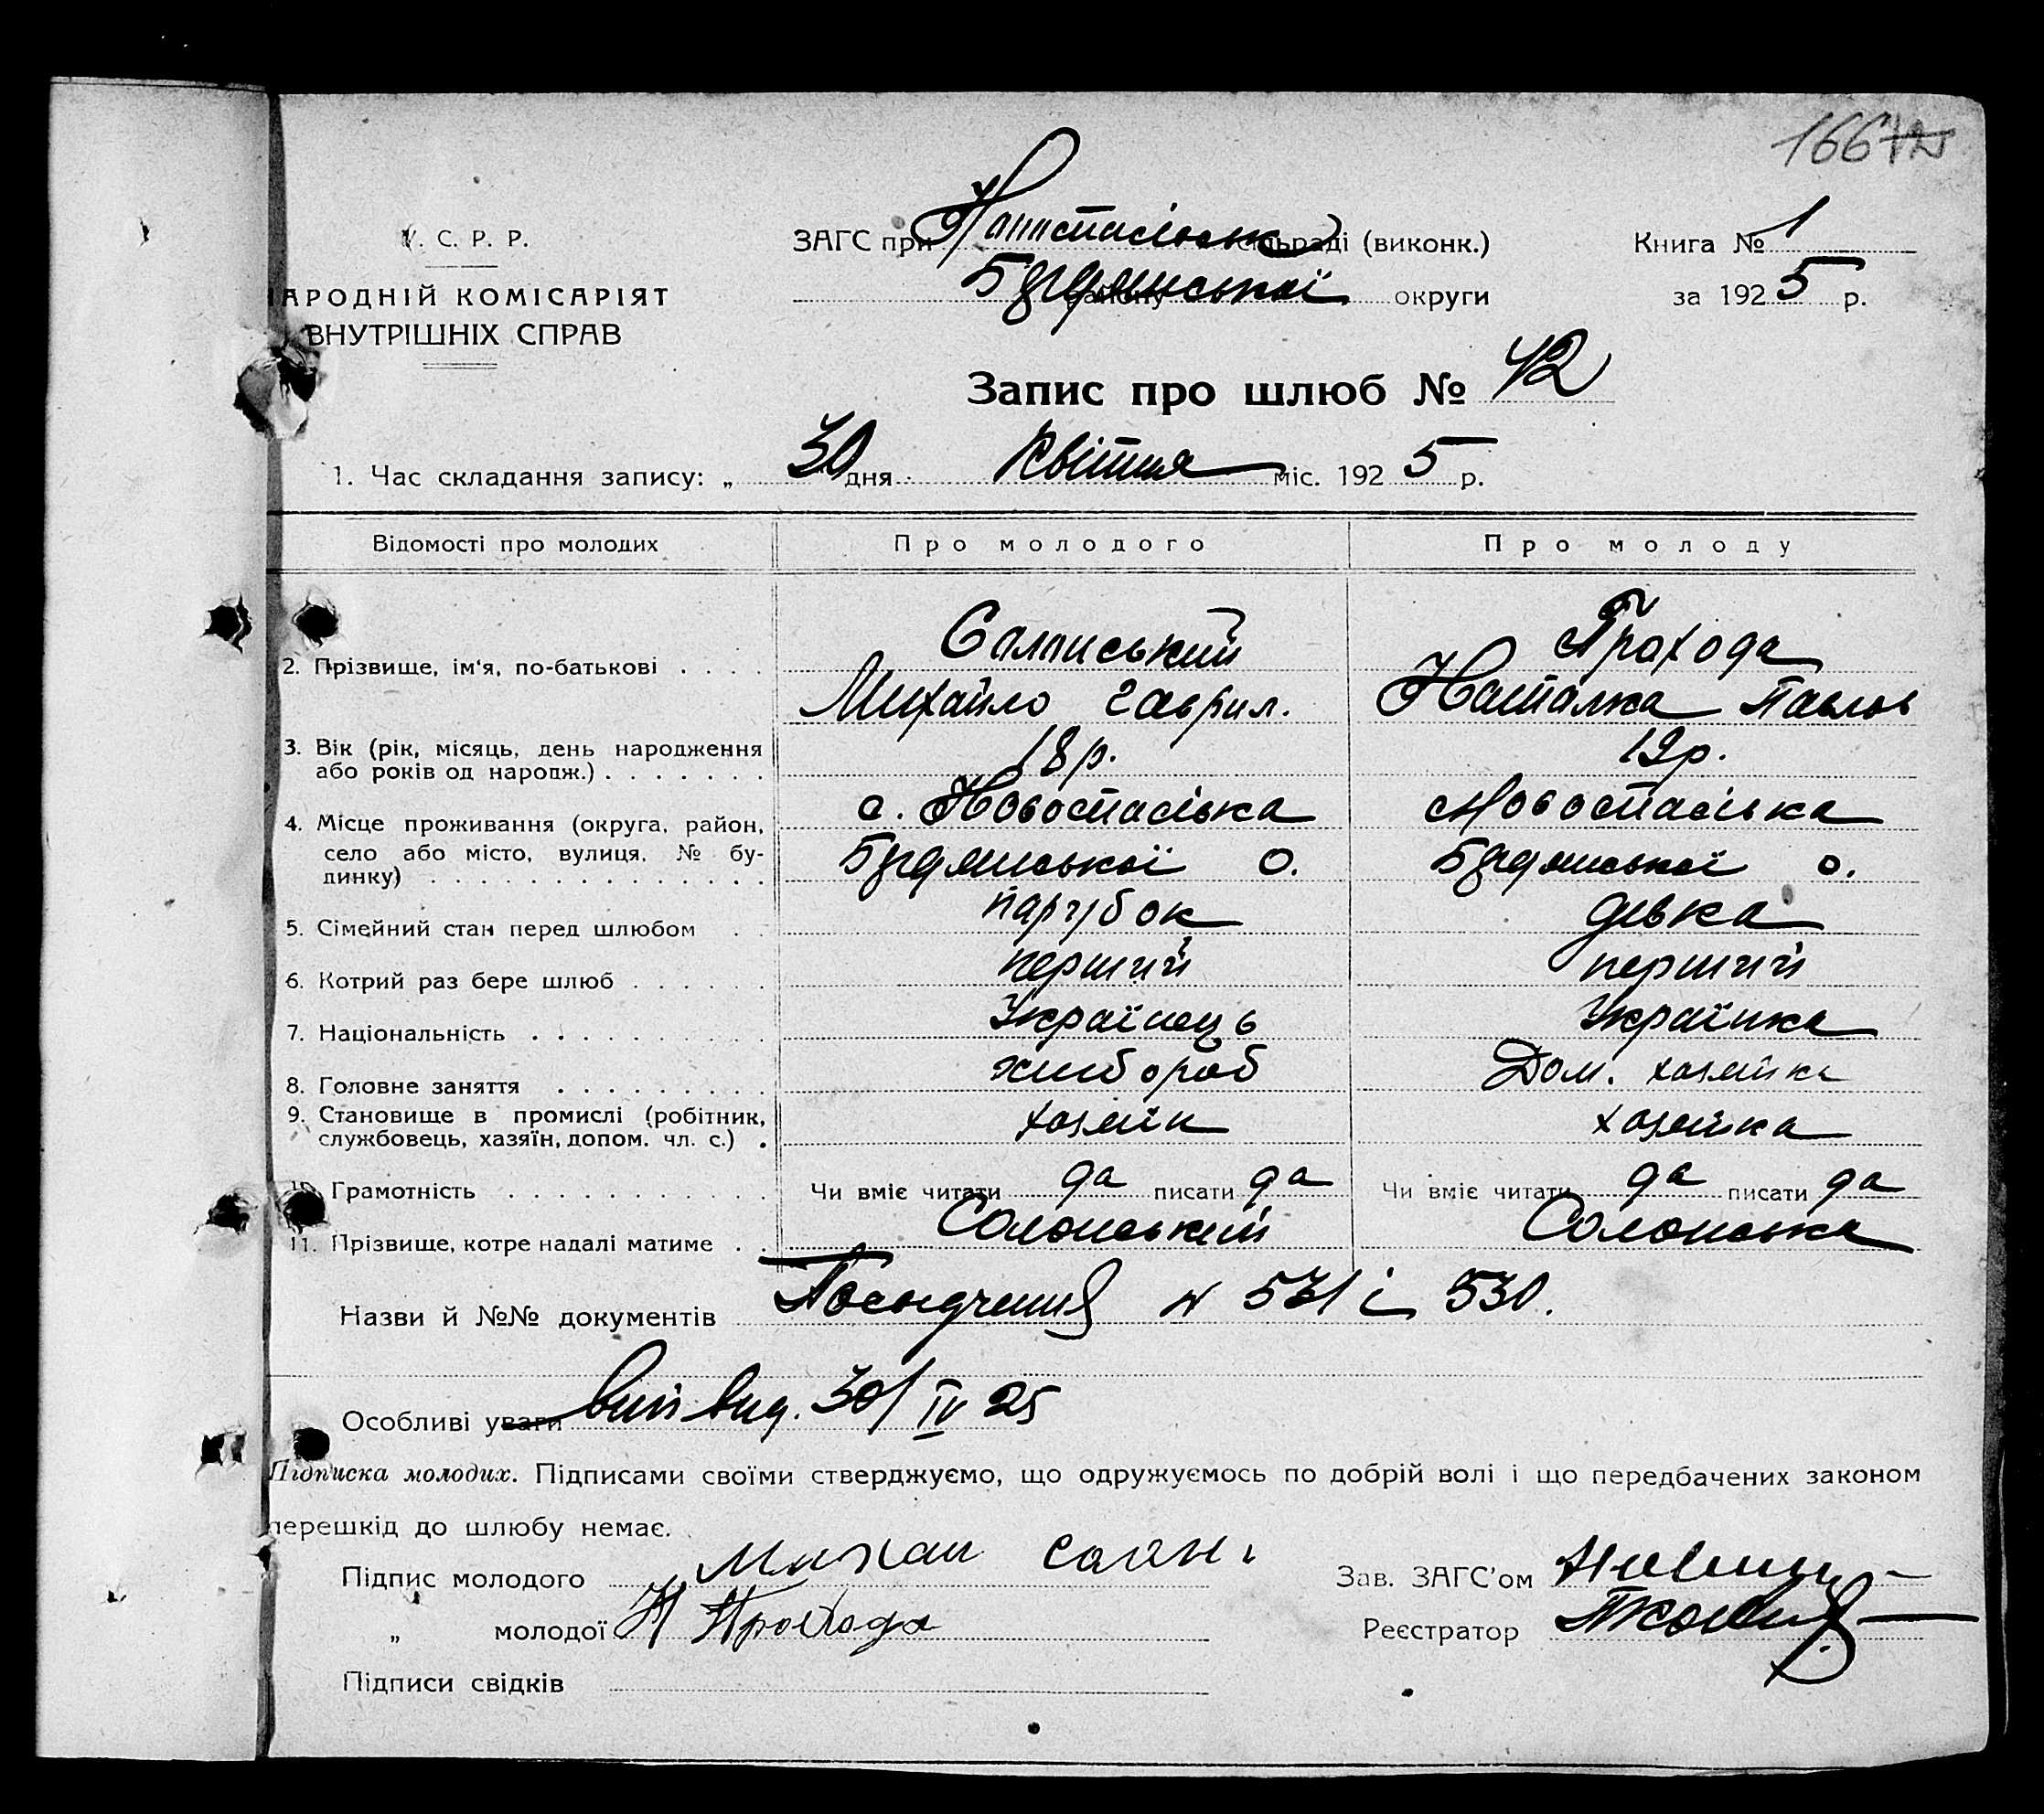 У. С. Р. Р.
АРОДНІЙ КОМІСАРІЯТ
ВНУТРІШНІХ СПРАВ
ЗАГС при сільраді (виконк.)
району Бердянської округи
Книга № 1
за 1925 р.
Запис про шлюб № 42
1. Час складання запису: „30 дня Квітня міс. 1925 р.
Відомості про молодих Про молодого Про молоду
2. Прізвище, ім'я, по-батькові . . . . Солонський Прохода
Михайло Гаврил. Наталка Павлов
3. Вік (рік, місяць, день народження
або років од народж.) . . . . . . . 18 р. 19 р.
4. Місце проживання (округа, район,
село або місто, вулиця, № бу-
динку) . . . . . . . . . . . . . . .
с. Новоспаська Новоспаська
Бердянської о. Бердянської о.
5. Сімейний стан перед шлюбом . . парубок девка
6. Котрий раз бере шлюб . . . . . . перший перший
7. Національність . . . . . . . . . . Українець Українка
8. Головне заняття . . . . . . . . . хлибороб Дом. хозяйка
9. Становище в промислі (робітник,
службовець, хазяїн, допом. чл. с.) . хозяїн хозяйка
10. Грамотність . . . . . . . . . . . Чи вміє читати да писати да Чи вміє читати да писати да
11. Прізвище, котре надалі матиме . . Солонський Солонська
Назви й №№ документів Посвідчення № 531 і 530.
Особливі уваги вип вид. 30/IV 25
Підписка молодих. Підписами своїми стверджуємо, що одружуємось по добрій волі і що передбачених законом
перешкід до шлюбу немає.
Підпис молодого Михаи Солон
„ молодої Н Прохода
Підписи свідків
Зав. ЗАГС'ом
Реєстратор